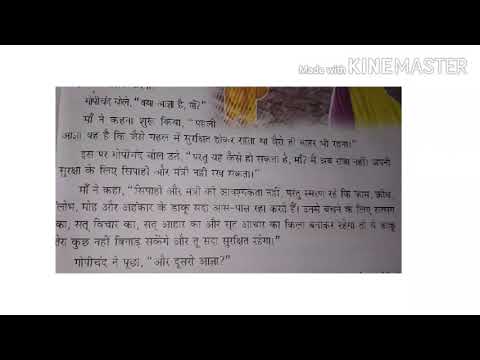 Made with KINEMASTER
गोपीचंद बोले, “क्या आज्ञा है, माँ?”
माँ ने कहना शुरू किया, “पहली
आज्ञा यह है कि जैसे महल में सुरक्षित होकर रहता था वैसे ही बाहर भी रहना।”
इस पर गोपीचंद बोल उठे, “परंतु यह कैसे हो सकता है, माँ? मैं अब राजा नहीं। अपनी
सुरक्षा के लिए सिपाही और मंत्री नहीं रख सकता।”
माँ ने कहा, “सिपाही और मंत्री की आवश्यकता नहीं, परंतु स्मरण रहे कि काम, क्रोध,
लोभ, मोह और अहंकार के डाकू सदा आस-पास रहा करते हैं। उनसे बचने के लिए सत्संग
का, सत् विचार का, सत् आहार का और सत् आचार का किला बनाकर रहेगा तो ये डाकू
तेरा कुछ नहीं बिगाड़ सकेंगे और तू सदा सुरक्षित रहेगा।”
गोपीचंद ने पूछा, “और दूसरी आज्ञा?”